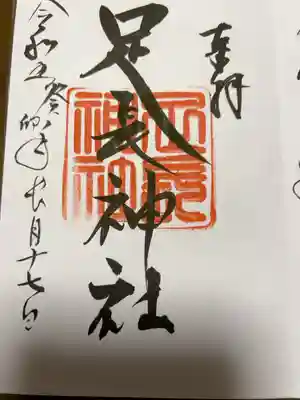 奉拝
足長神社
令和五癸卯年長月十七日